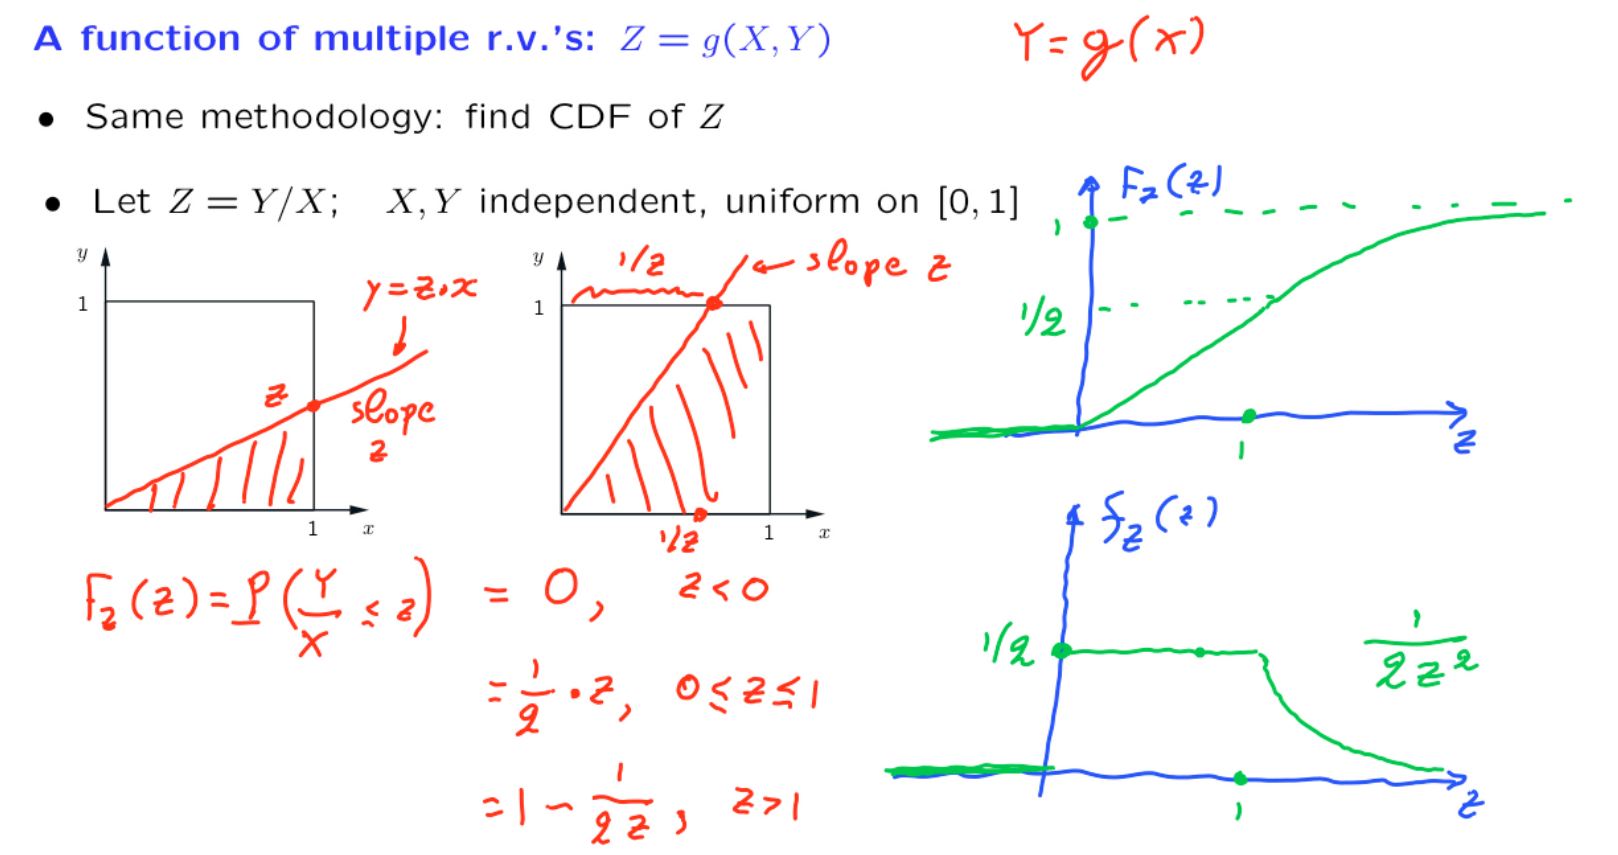 A function of multiple r.v.'s: Z = g(X, Y)
Y = g(X)
• Same methodology: find CDF of Z
• Let Z = Y/X; X, Y independent, uniform on [0, 1]
y
1
y = z·x
z
slope
z
1
x
y
1
1/z
slope z
1/z
1
x
F_Z(z)
1
1/2
1
z
F_Z(z) = P(Y/X ≤ z) = 0, z < 0
= 1/2 · z, 0 ≤ z ≤ 1
= 1 − 1/2z, z > 1
f_Z(z)
1/2
1/2z²
1
z